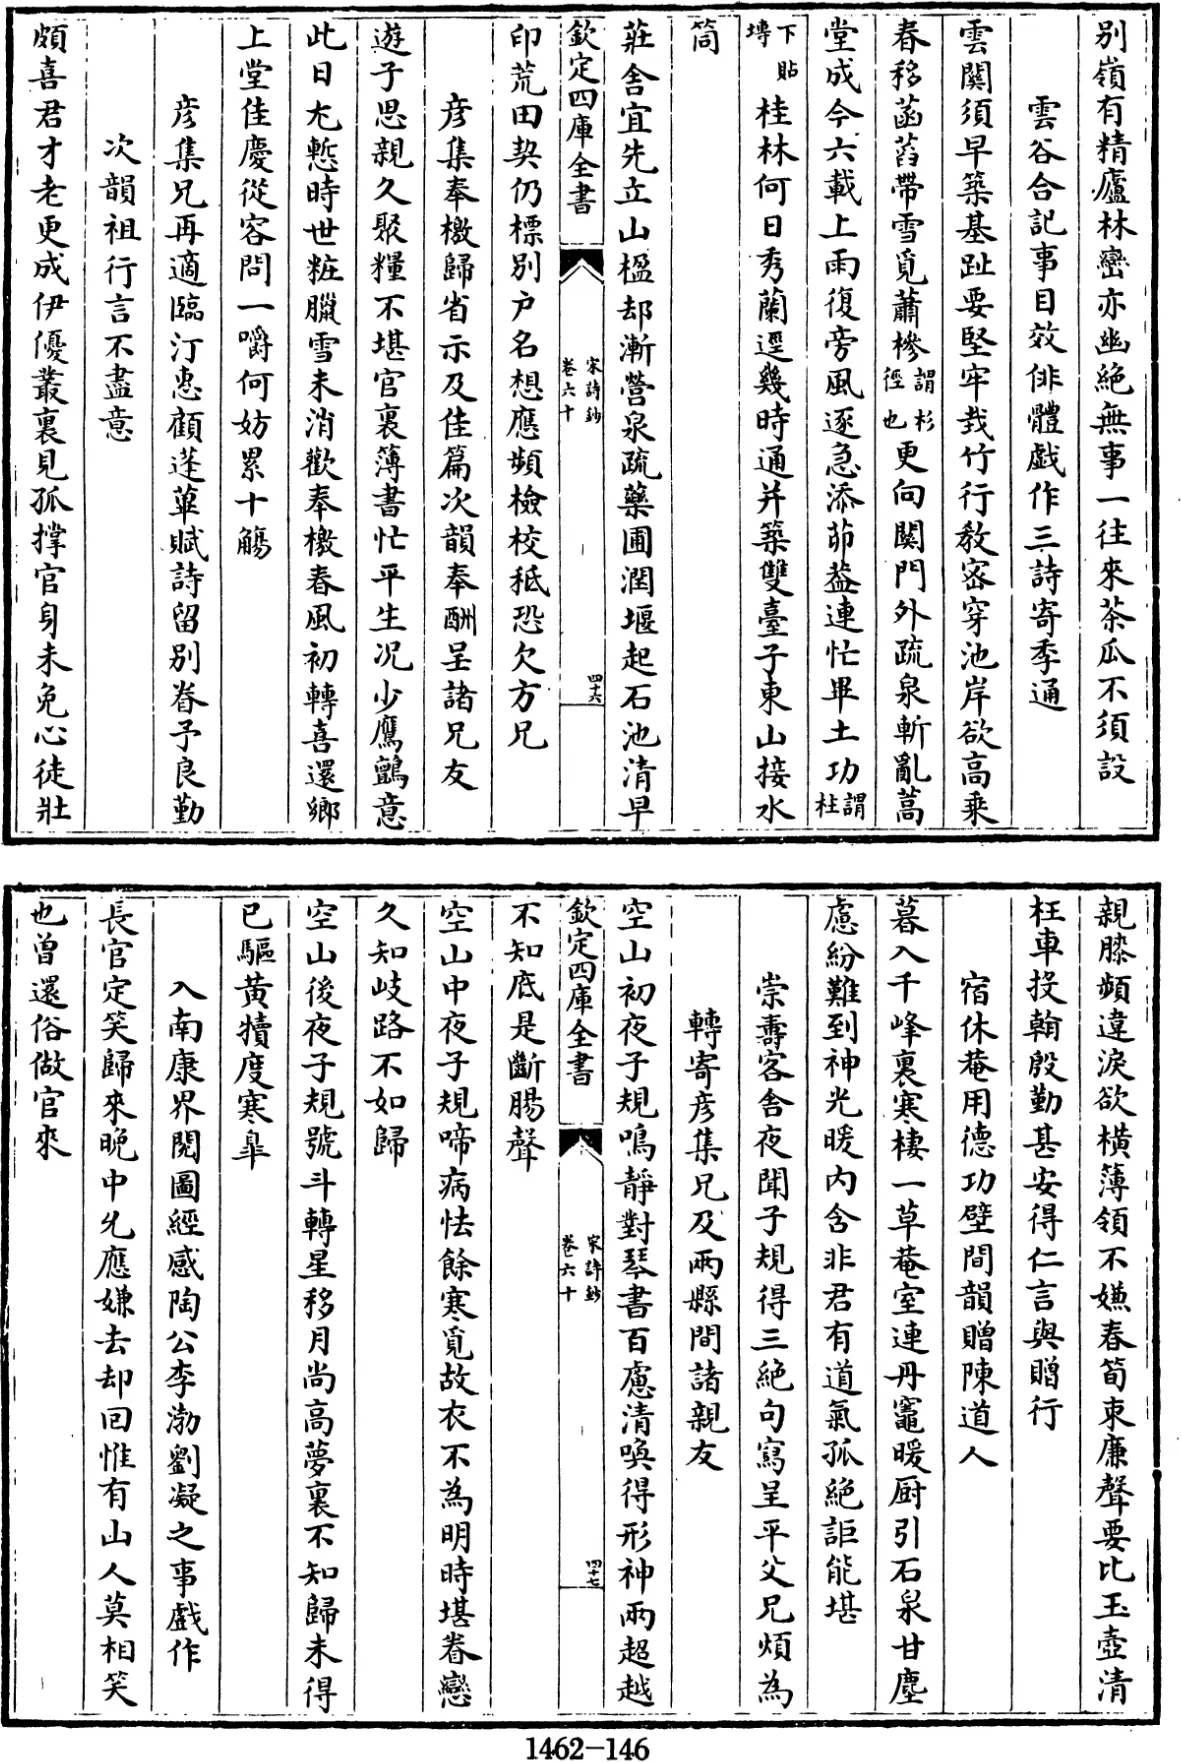 別嶺有精廬林巒亦幽絶無事一往來茶瓜不須設
雲谷合記事目效俳體戯作三詩寄季通
雲闗須早築基趾要堅牢栽竹行教密穿池岸欲高乘
春移菡萏帶雪覓蕭槮謂杉徑也更向闗門外疏泉斬亂蒿
堂成今六載上雨復旁風逐急添茆葢連忙畢土功謂柱
下貼塼桂林何日秀蘭逕幾時通并築雙臺子東山接水
筒
莊舎宜先立山楹却漸營泉疏藥圃潤堰起石池清早
欽定四庫全書
宋詩鈔
卷六十
四十六
印荒田契仍標别户名想應頻檢校秪恐欠方兄
彦集奉檄歸省示及佳篇次韻奉酬呈諸兄友
遊子思親久聚糧不堪官裏簿書忙平生况少鷹鸇意
此日尢慙時世粧臘雪未消歡奉檄春風初轉喜還鄉
上堂佳慶從容問一嚼何妨累十觴
彦集兄再適臨汀惠顧蓬蓽賦詩留别眷予良勤
次韻祖行言不盡意
頗喜君才老更成伊優叢裏見孤撑官身未免心徒壯
親膝頻違淚欲横簿領不嫌春筍束廉聲要比玉壺清
枉車投翰殷勤甚安得仁言與贈行
宿休菴用德功壁間韻贈陳道人
暮入千峰裏寒棲一草菴室連丹竈暖厨引石泉甘塵
慮紛難到神光暖内含非君有道氣孤絶詎能堪
崇壽客舎夜聞子規得三絶句寫呈平父兄煩為
轉寄彦集兄及兩縣間諸親友
空山初夜子規鳴靜對琴書百慮清喚得形神兩超越
欽定四庫全書
宋詩鈔
卷六十
四十七
不知底是斷腸聲
空山中夜子規啼病怯餘寒覓故衣不為明時堪眷戀
久知岐路不如歸
空山後夜子規號斗轉星移月尚高夢裏不知歸未得
已驅黄犢度寒臯
入南康界閱圖經感陶公李渤劉凝之事戯作
長官定笑歸來晩中允應嫌去却回惟有山人莫相笑
也曾還俗做官來
1462—146